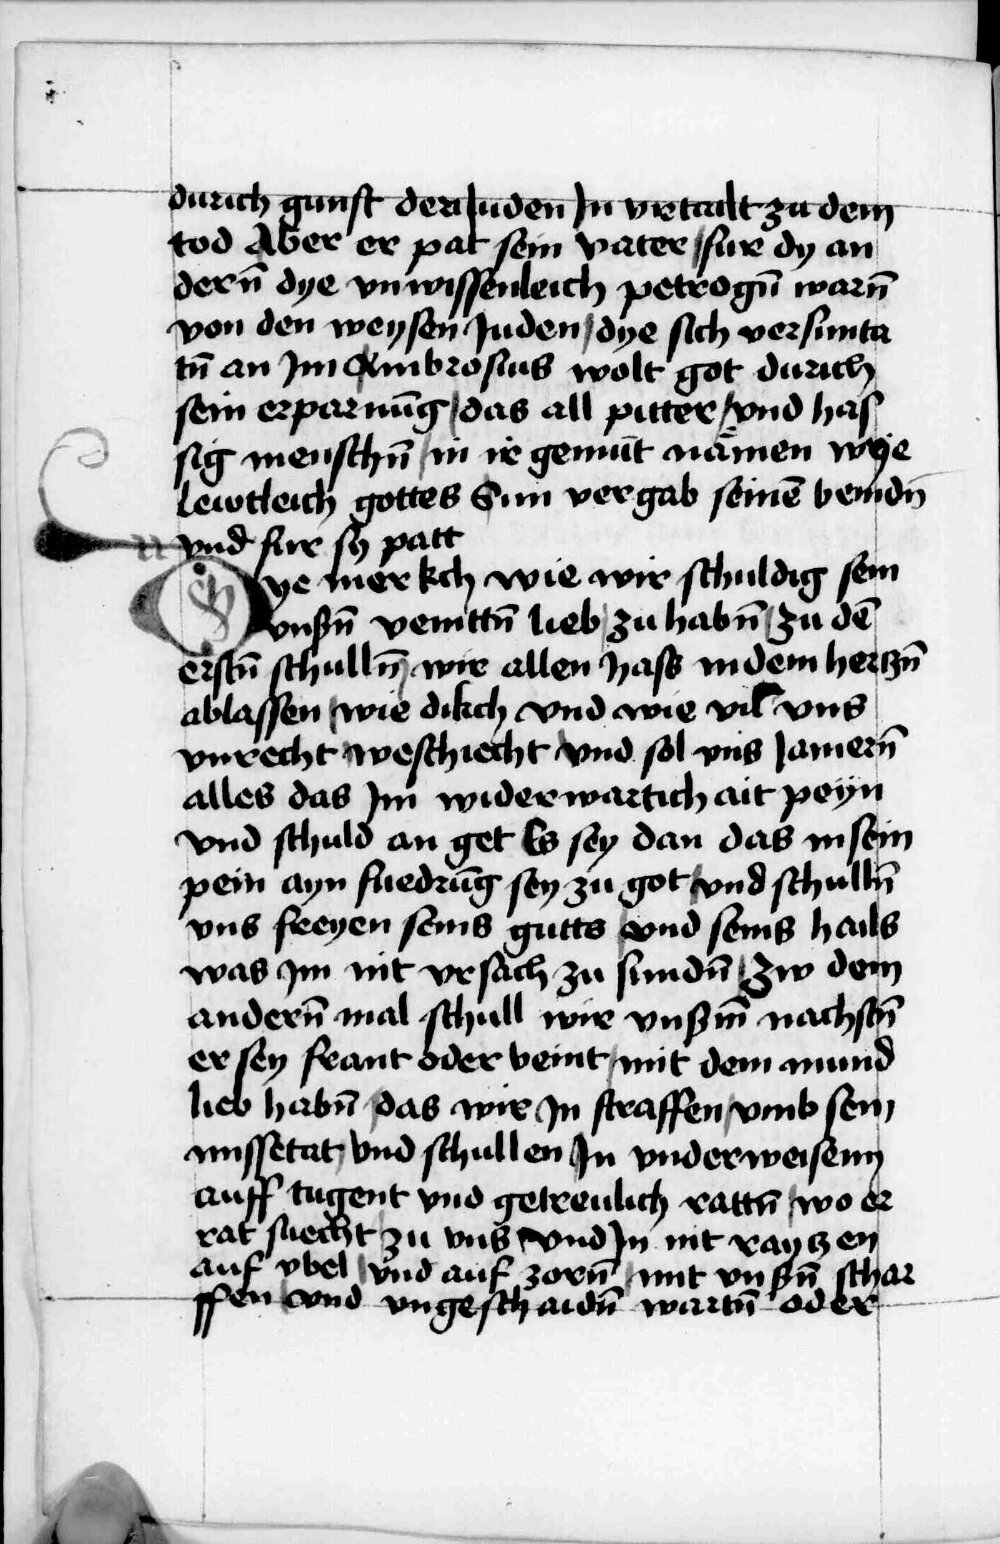 durich gunst der Juden In vrtailt zu dem
tod Aber er pat sein vater / fur dy an
dern̄ dye vnwissenleich petrogn̄ warn̄
von den weysen Juden / dye sich versunta
tn̄ an Im Ambrosius wolt got durich
sein erparnūg / das all pitter / vnd has
sig menschn̄ / in ir gemüt nämen wye
lewtleich gottes Sun vergab seinē veindn̄
vnd fur sy patt
Hye merkch wie wir schuldig sein
vnßn̄ veintn̄ lieb / zu habn̄ / zu dē
erstn̄ schulln̄ / wir allen hass in dem hertzn̄
ablassen / wie dikch vnd wie vil vns
vnrecht weschiecht / vnd sol vns Jamern̄
alles das Im widerwartichait peyn
vnd schuld an get Es sey dan das in sein
pein ayn fuedrūg sey zu got / vnd schulln̄
vns freyen seins gutts / vnd seins hails
was Im nit vrsach zu sundn̄ / Zw dem
andern̄ mal schull wir vnßm̄ nachstn̄
er sey fraint oder veint / mit dem mund
lieb habn̄ / das wir In straffen / vmb sein
missetat / vnd schullen In vnderweisenn
auff tugent vnd getreulich rattn̄ / wo er
rat suecht / zu vns / vnd In nit raytzen
auf vbel / vnd auf zorn̄ / mit vnßn̄ schar
ffen / vnd vngeschaidn̄ wartn̄ oder